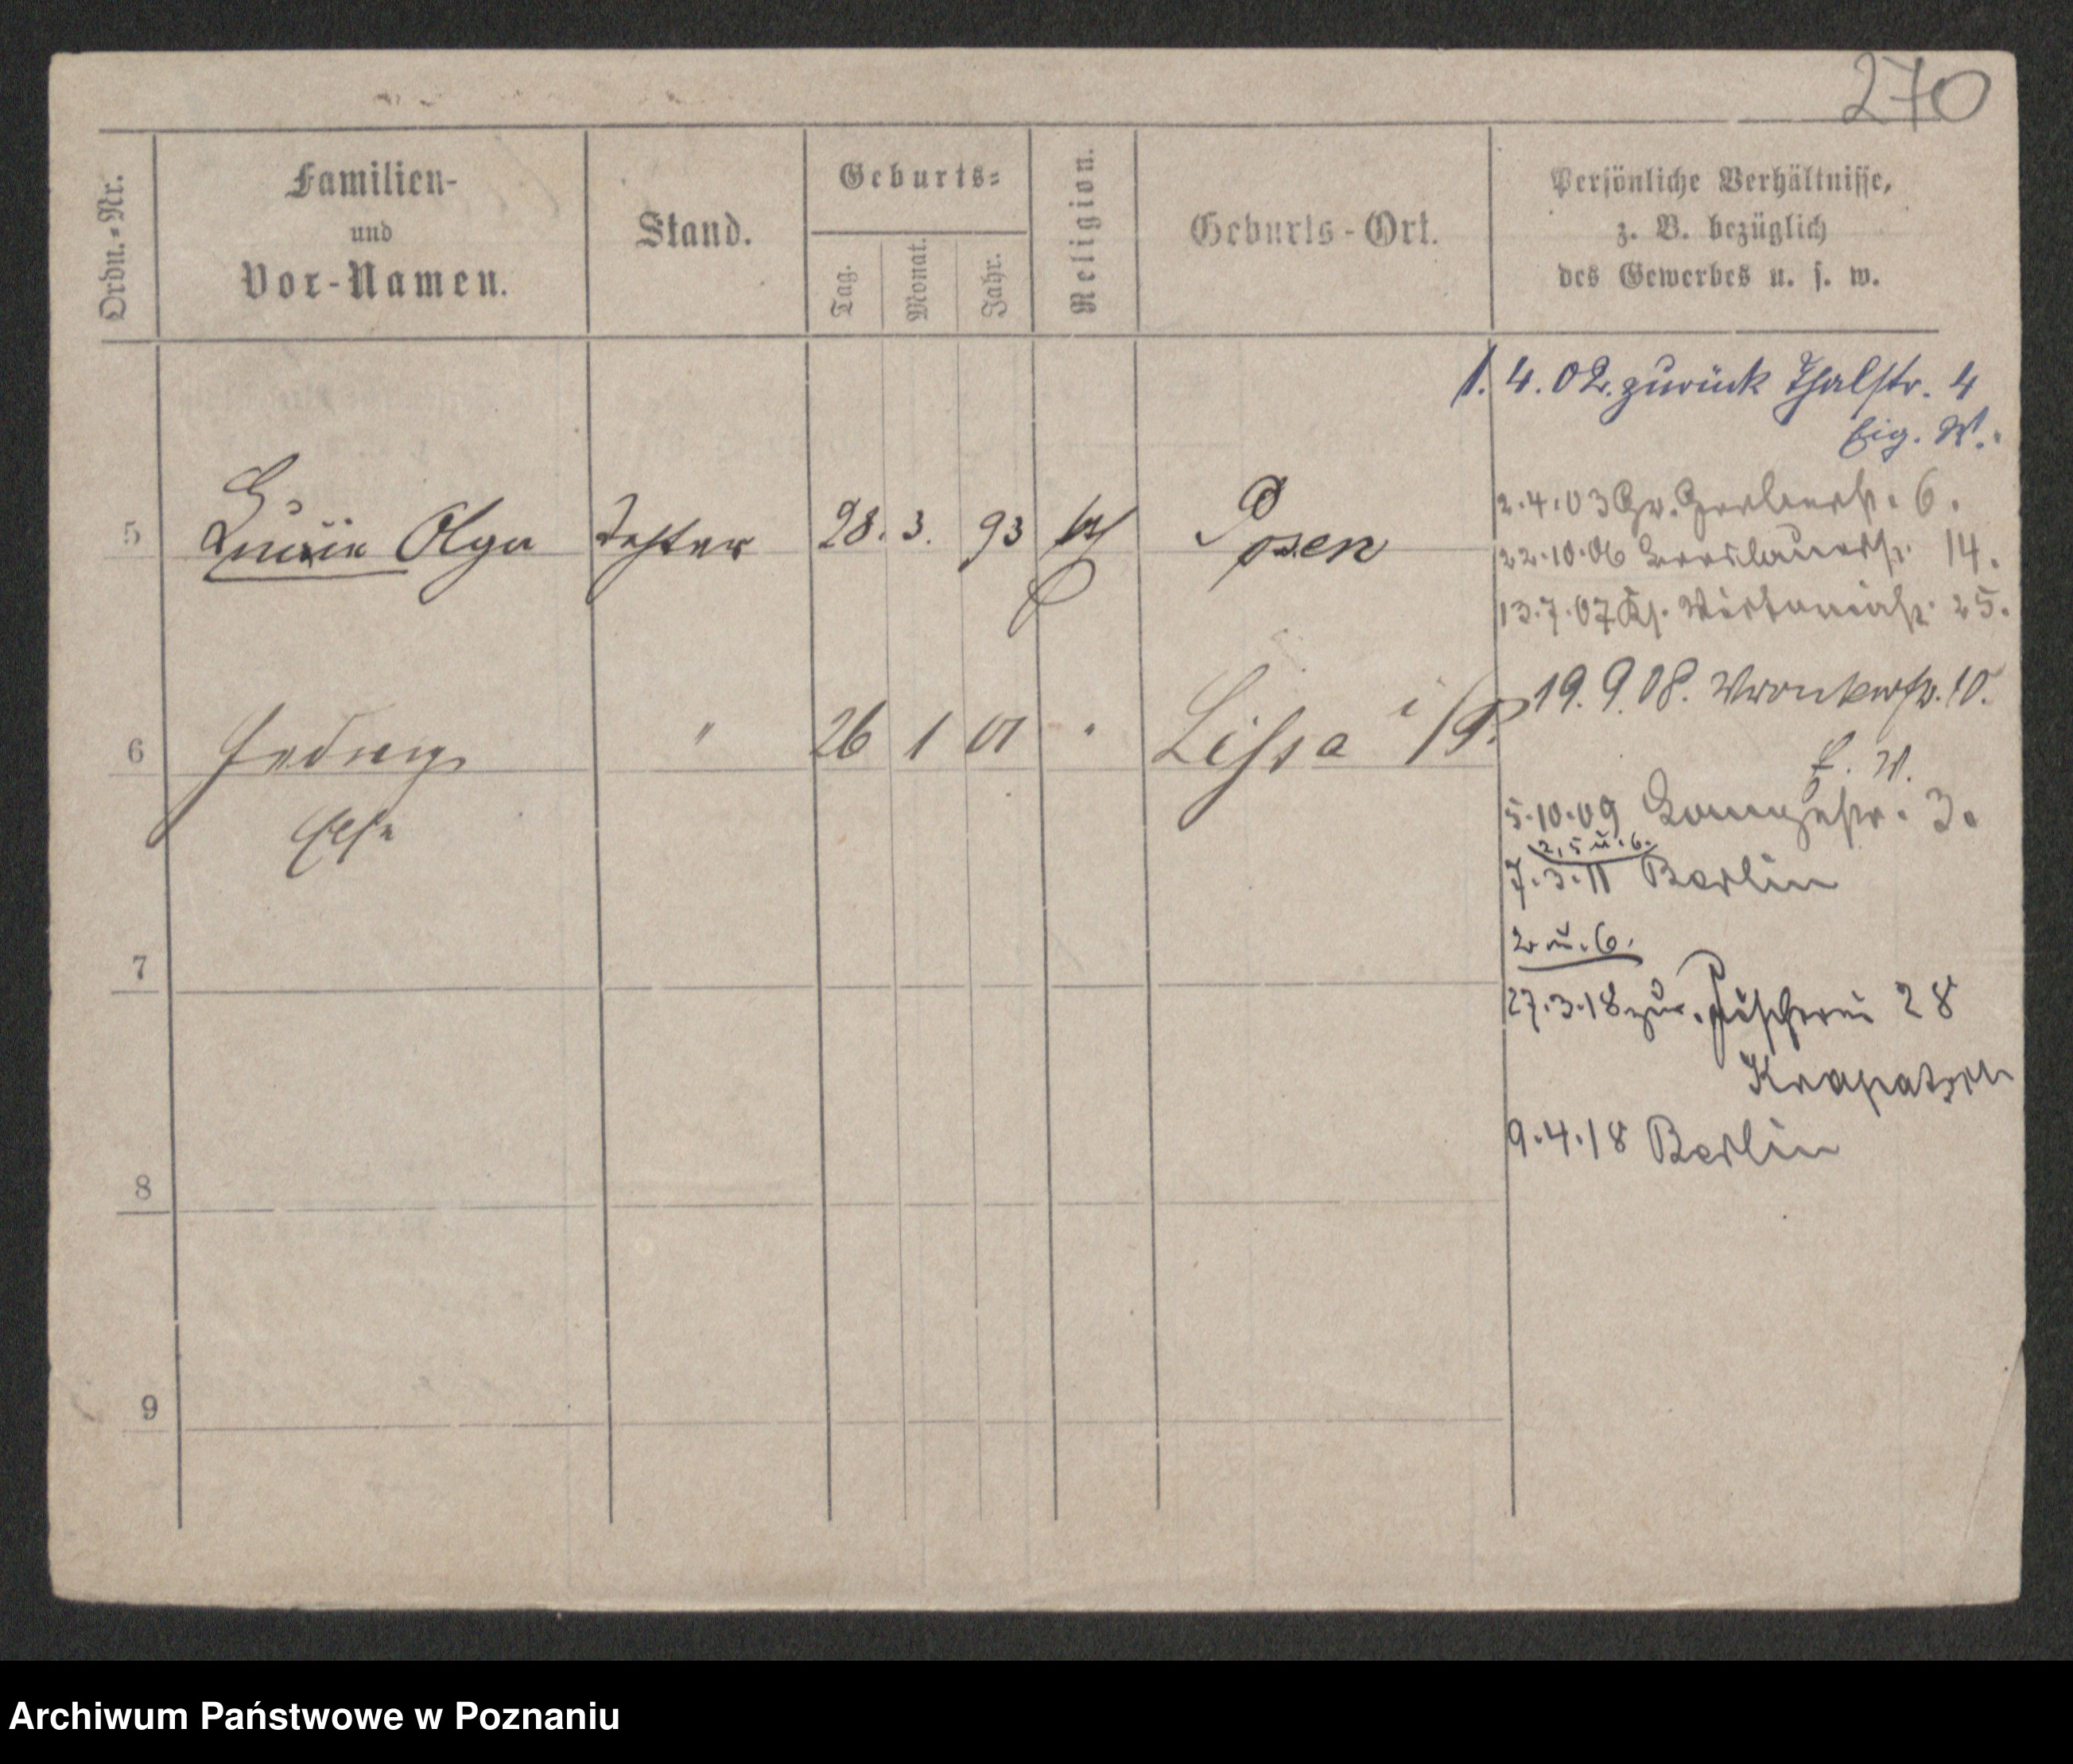 270
Ordn.-Nr.
Familien-
und
Vor-Namen.
Stand.
Geburts-
Tag.
Monat.
Jahr.
Religion.
Geburts-Ort.
Persönliche Verhältnisse,
z. B. bezüglich
des Gewerbes u. s. w.
1. 4. 02. zurück Thalstr. 4
Eig. W.
5 Olga Tochter 28. 3. 93 Posen
2.4.03 Gr. Gerberstr. 6.
22.10.06 Breslauerstr. 14.
13.7.07 25.
19. 9. 08. Wronkerstr. 10.
6 Hedwig " 26 1 01 " Lissa i/P.
E. W.
Else
5.10.09 3.
2, 5 u. 6.
7.3.11 Berlin
2 u. 6.
7
27.3.18 zur. Fischerei 28
9.4.18 Berlin
8
9
Archiwum Państwowe w Poznaniu